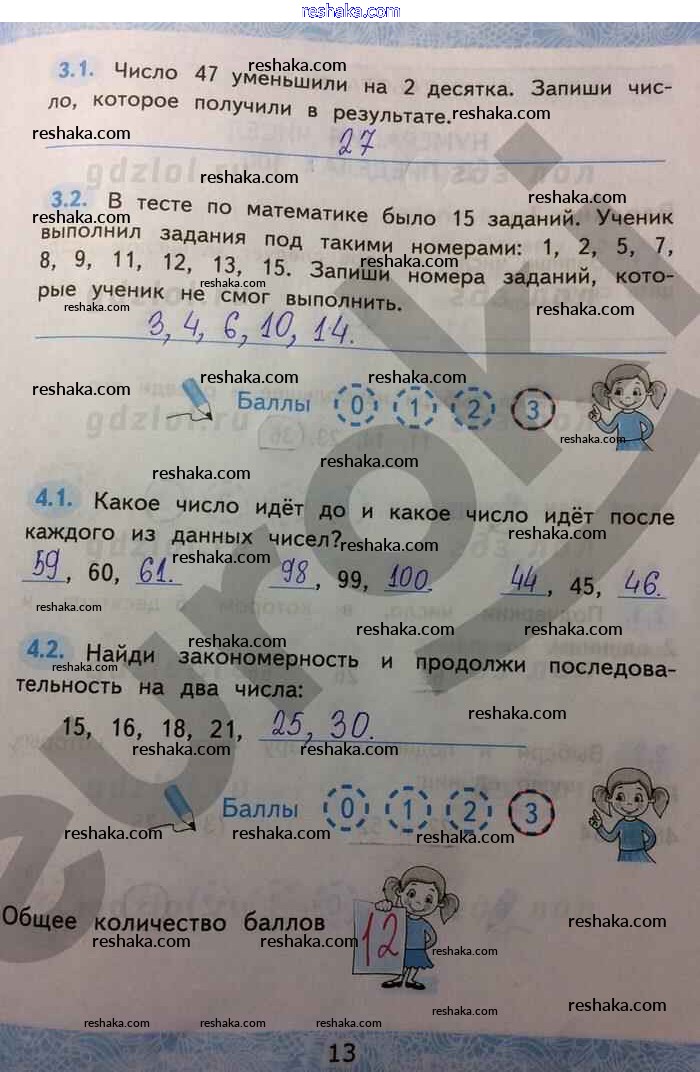 reshaka.com
3.1. Число 47 уменьшили на 2 десятка. Запиши чис-
ло, которое получили в результате.
27
3.2. В тесте по математике было 15 заданий. Ученик
выполнил задания под такими номерами: 1, 2, 5, 7,
8, 9, 11, 12, 13, 15. Запиши номера заданий, кото-
рые ученик не смог выполнить.
3, 4, 6, 10, 14.
Баллы 0 1 2 3
4.1. Какое число идёт до и какое число идёт после
каждого из данных чисел?
59, 60, 61. 98, 99, 100. 44, 45, 46.
4.2. Найди закономерность и продолжи последова-
тельность на два числа:
15, 16, 18, 21, 25, 30.
Баллы 0 1 2 3
Общее количество баллов 12
13